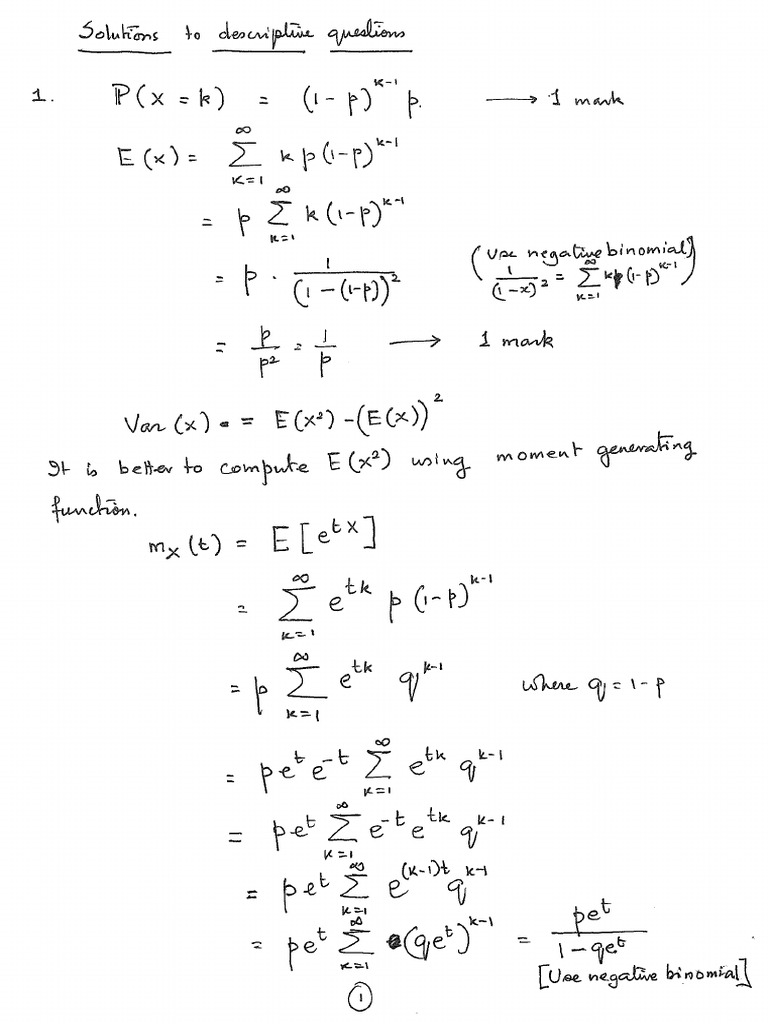 Solutions to descriptive questions
1. P(X = k) = (1-p)^{k-1} p. → 1 mark
E(x) = ∑_{k=1}^{∞} k p (1-p)^{k-1}
= p ∑_{k=1}^{∞} k (1-p)^{k-1}
= p · 1/(1-(1-p))^2 (Use negative binomial) (1/(1-x)^2 = ∑_{k=1}^{∞} k (1-p)^{k-1})
= p/p^2 = 1/p → 1 mark
Var(x) = E(x^2) - (E(x))^2
It is better to compute E(x^2) using moment generating
function.
m_X(t) = E[e^{tX}]
= ∑_{k=1}^{∞} e^{tk} p (1-p)^{k-1}
= p ∑_{k=1}^{∞} e^{tk} q^{k-1} where q = 1-p
= pe^t e^{-t} ∑_{k=1}^{∞} e^{tk} q^{k-1}
= pe^t ∑_{k=1}^{∞} e^{-t} e^{tk} q^{k-1}
= pe^t ∑_{k=1}^{∞} e^{(k-1)t} q^{k-1}
= pe^t ∑_{k=1}^{∞} (qe^t)^{k-1} = pe^t/(1-qe^t)
[Use negative binomial]
1